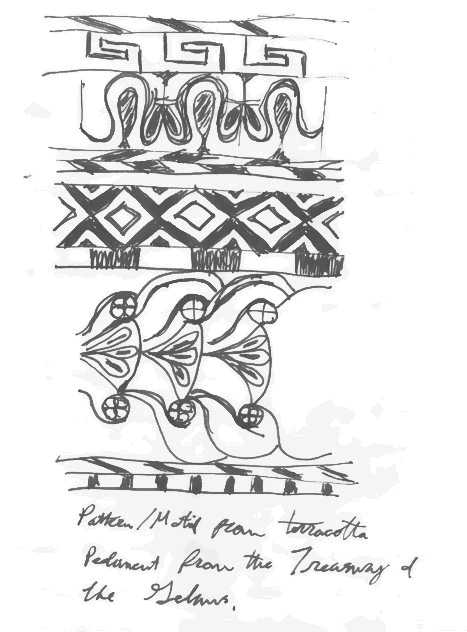 Pattern/Motif from terracotta
Pediment from the Treasury of
the Gelans.